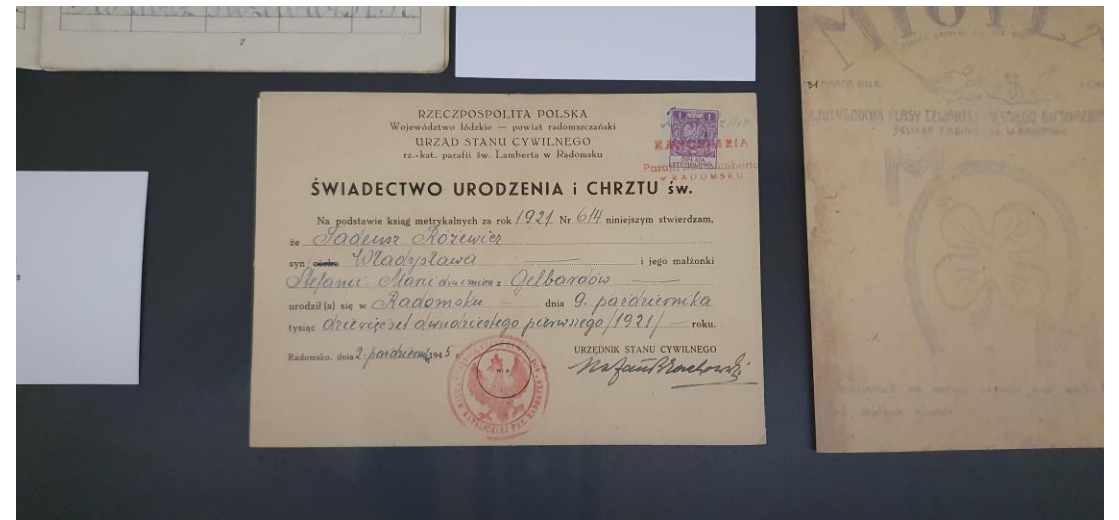 7
RZECZPOSPOLITA POLSKA
Województwo łódzkie — powiat radomszczański
URZĄD STANU CYWILNEGO
rz.-kat. parafii św. Lamberta w Radomsku
1 1
OPŁATA
STEMPLOWA
KANCELARIA
Parafii Lamberta
w RADOMSKU
ŚWIADECTWO URODZENIA i CHRZTU św.
Na podstawie ksiąg metrykalnych za rok 1921 Nr 614 niniejszym stwierdzam,
że Tadeusz Rózewicz
syn córka Władysława i jego małżonki
Stefanii - Marii dwuimion z Gelbardów
urodził (a) się w Radomsku dnia 9. października
tysiąc dziewięćset dwudziestego pierwszego /1921/ roku.
Radomsko, dnia 2-października 1945 r.
URZĘDNIK STANU CYWILNEGO
MIOTŁA
MARCA
KLASY CZWARTEJ